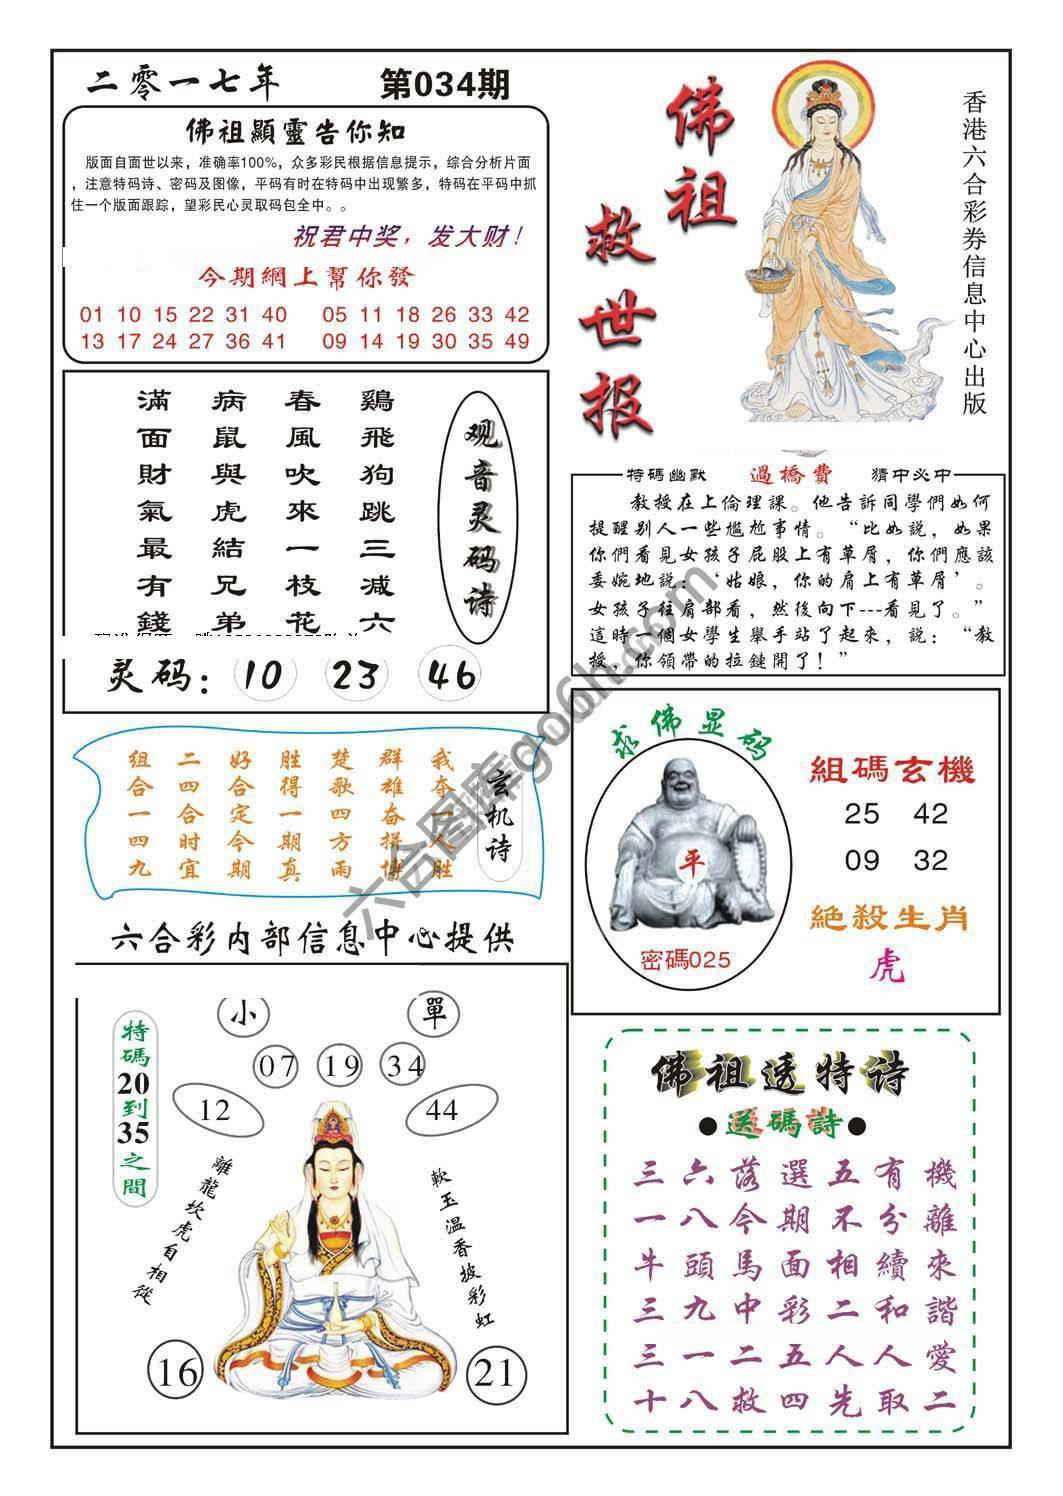 二零一七年
第034期
佛祖顯靈告你知
版面自面世以来，准确率100%，众多彩民根据信息提示，综合分析片面
，注意特码诗、密码及图像，平码有时在特码中出现繁多，特码在平码中抓
住一个版面跟踪，望彩民心灵取码包全中。。
祝君中奖，发大财！
今期網上幫你發
01 10 15 22 31 40 05 11 18 26 33 42
13 17 24 27 36 41 09 14 19 30 35 49
佛祖
救世报
香港六合彩券信息中心出版
观音灵码诗
鷄飛狗跳三减六
春風吹來一枝花
病鼠與虎結兄弟
滿面財氣最有錢
灵码：10 23 46
特碼幽默 過橋費 猜中必中
教授在上倫理課。他告訴同學們如何
提醒别人一些尷尬事情。“比如説，如果
你們看見女孩子屁股上有草屑，你們應該
委婉地説：‘姑娘，你的肩上有草屑’。
女孩子往肩部看，然後向下---看見了。”
這時一個女學生舉手站了起來，説：“教
授，你領帶的拉鏈開了！”
玄机诗
我夺一人胜
群雄奋拼博
楚歌四方雨
胜得一期真
好合定今期
二四合时宜
组合一四九
六合彩内部信息中心提供
求佛显码
平
密碼025
組碼玄機
25 42
09 32
絶殺生肖
虎
小 單
07 19 34
12 44
特碼20到35之間
離龍坎虎自相從
軟玉溫香披彩虹
16 21
佛祖透特诗
●送碼詩●
三六落選五有機
一八今期不分離
牛頭馬面相續來
三九中彩二和諧
三一二五人人愛
十八救四先取二
六合图库go6h.com